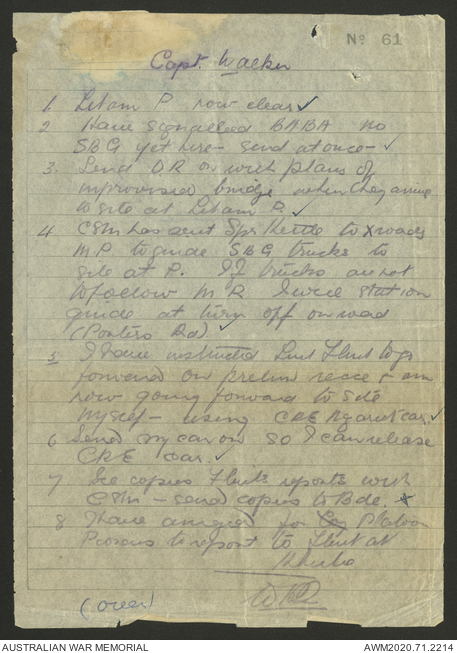 No 61
Capt. Walker
1 Litam P. now clear ✓
2 Have signalled BABA no
SBG yet here - send at once - ✓
3. Send D.R on with plans of
improvised bridge when they arrive
to site at Litam P. ✓
4 CSM has sent Spr Kettle to X roads
M.P. to guide SBG trucks to
site at P. If trucks are not
to follow M R I will station
guide at turn off on road
(Pontero Rd) ✓
5 I have instructed Lieut Flint to go
forward on prelim recce & am
now going forward to site
myself - using CRE car. ✓
6 Send my car on so I can release
CRE car. ✓
7 See copies Flints reports with
CSM - send copies to Bde.
8 I have arranged for Platoon
to report to Flint at
(over)
AUSTRALIAN WAR MEMORIAL
AWM2020.71.2214